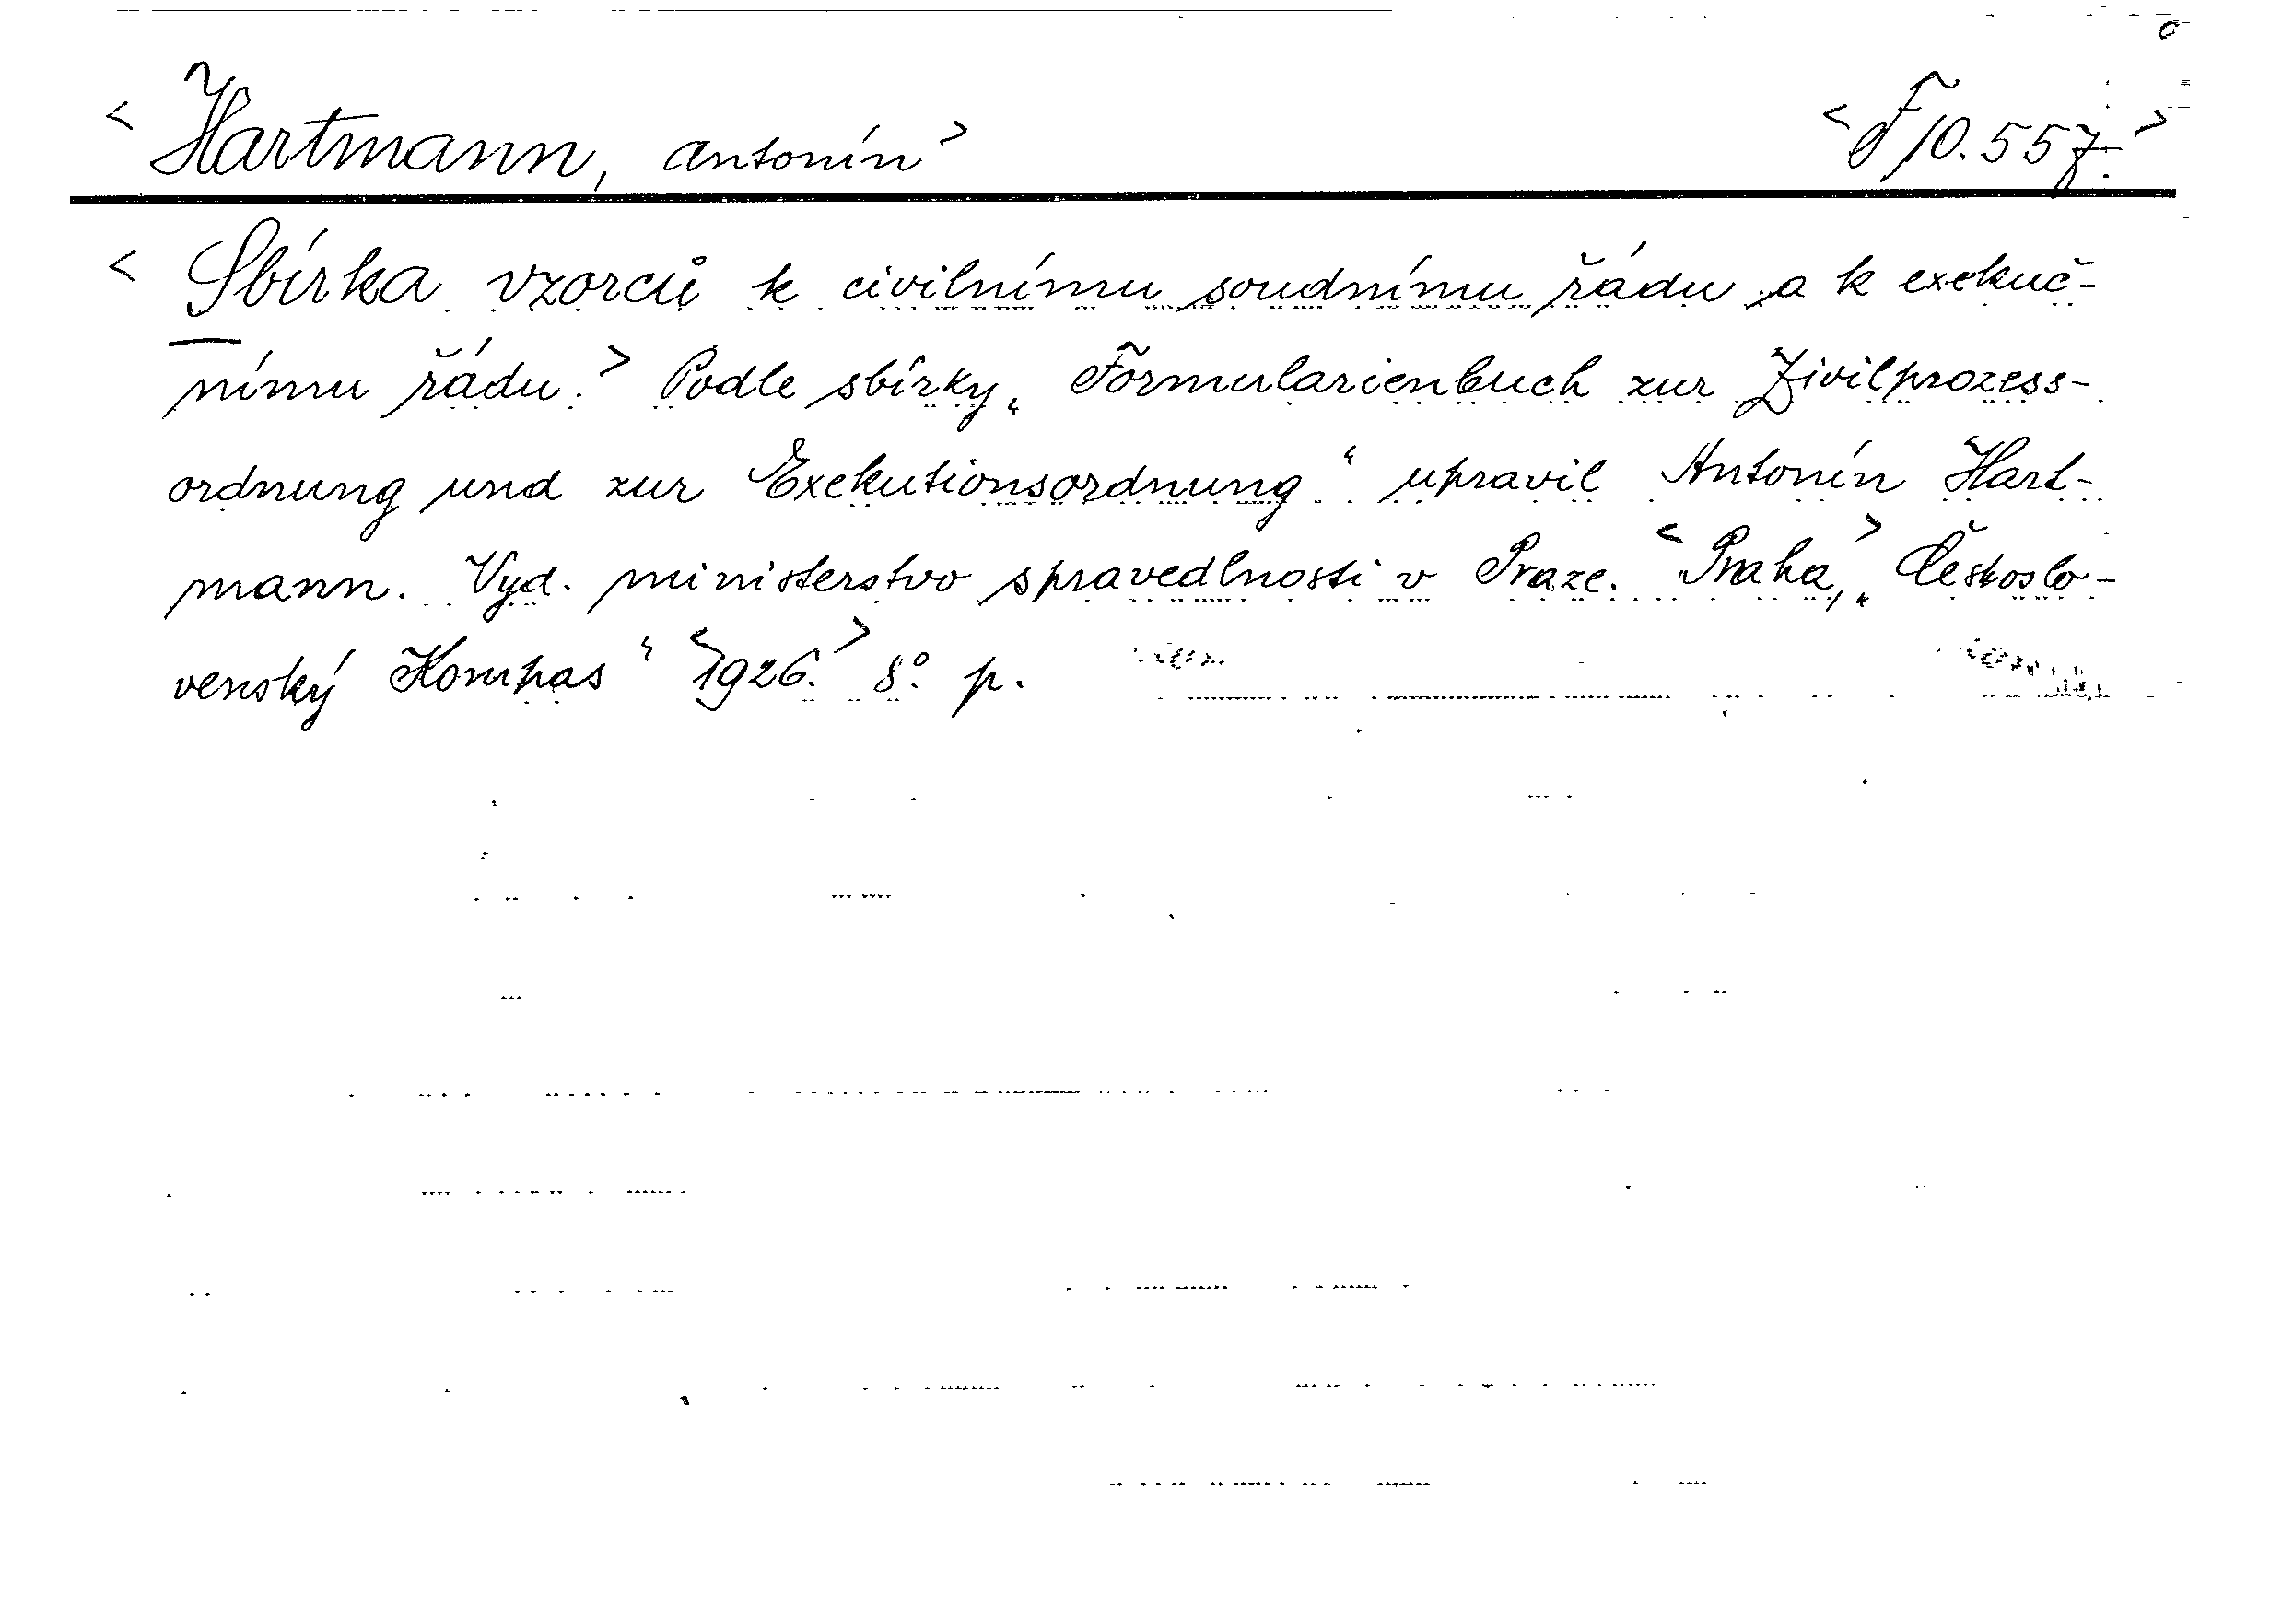 < Hartmann, Antonín > < F 10.557. >
< Sbírka vzorců k civilnímu soudnímu řádu a k exekuč-
nímu řádu. > Podle sbírky „Formularienbuch zur Zivilprozess-
ordnung und zur Exekutionsordnung“ upravil Antonín Hart-
mann. Vyd. ministerstvo spravedlnosti v Praze. < Praha, > „Českoslo-
venský Kompas“ < 1926. > 8°. p.